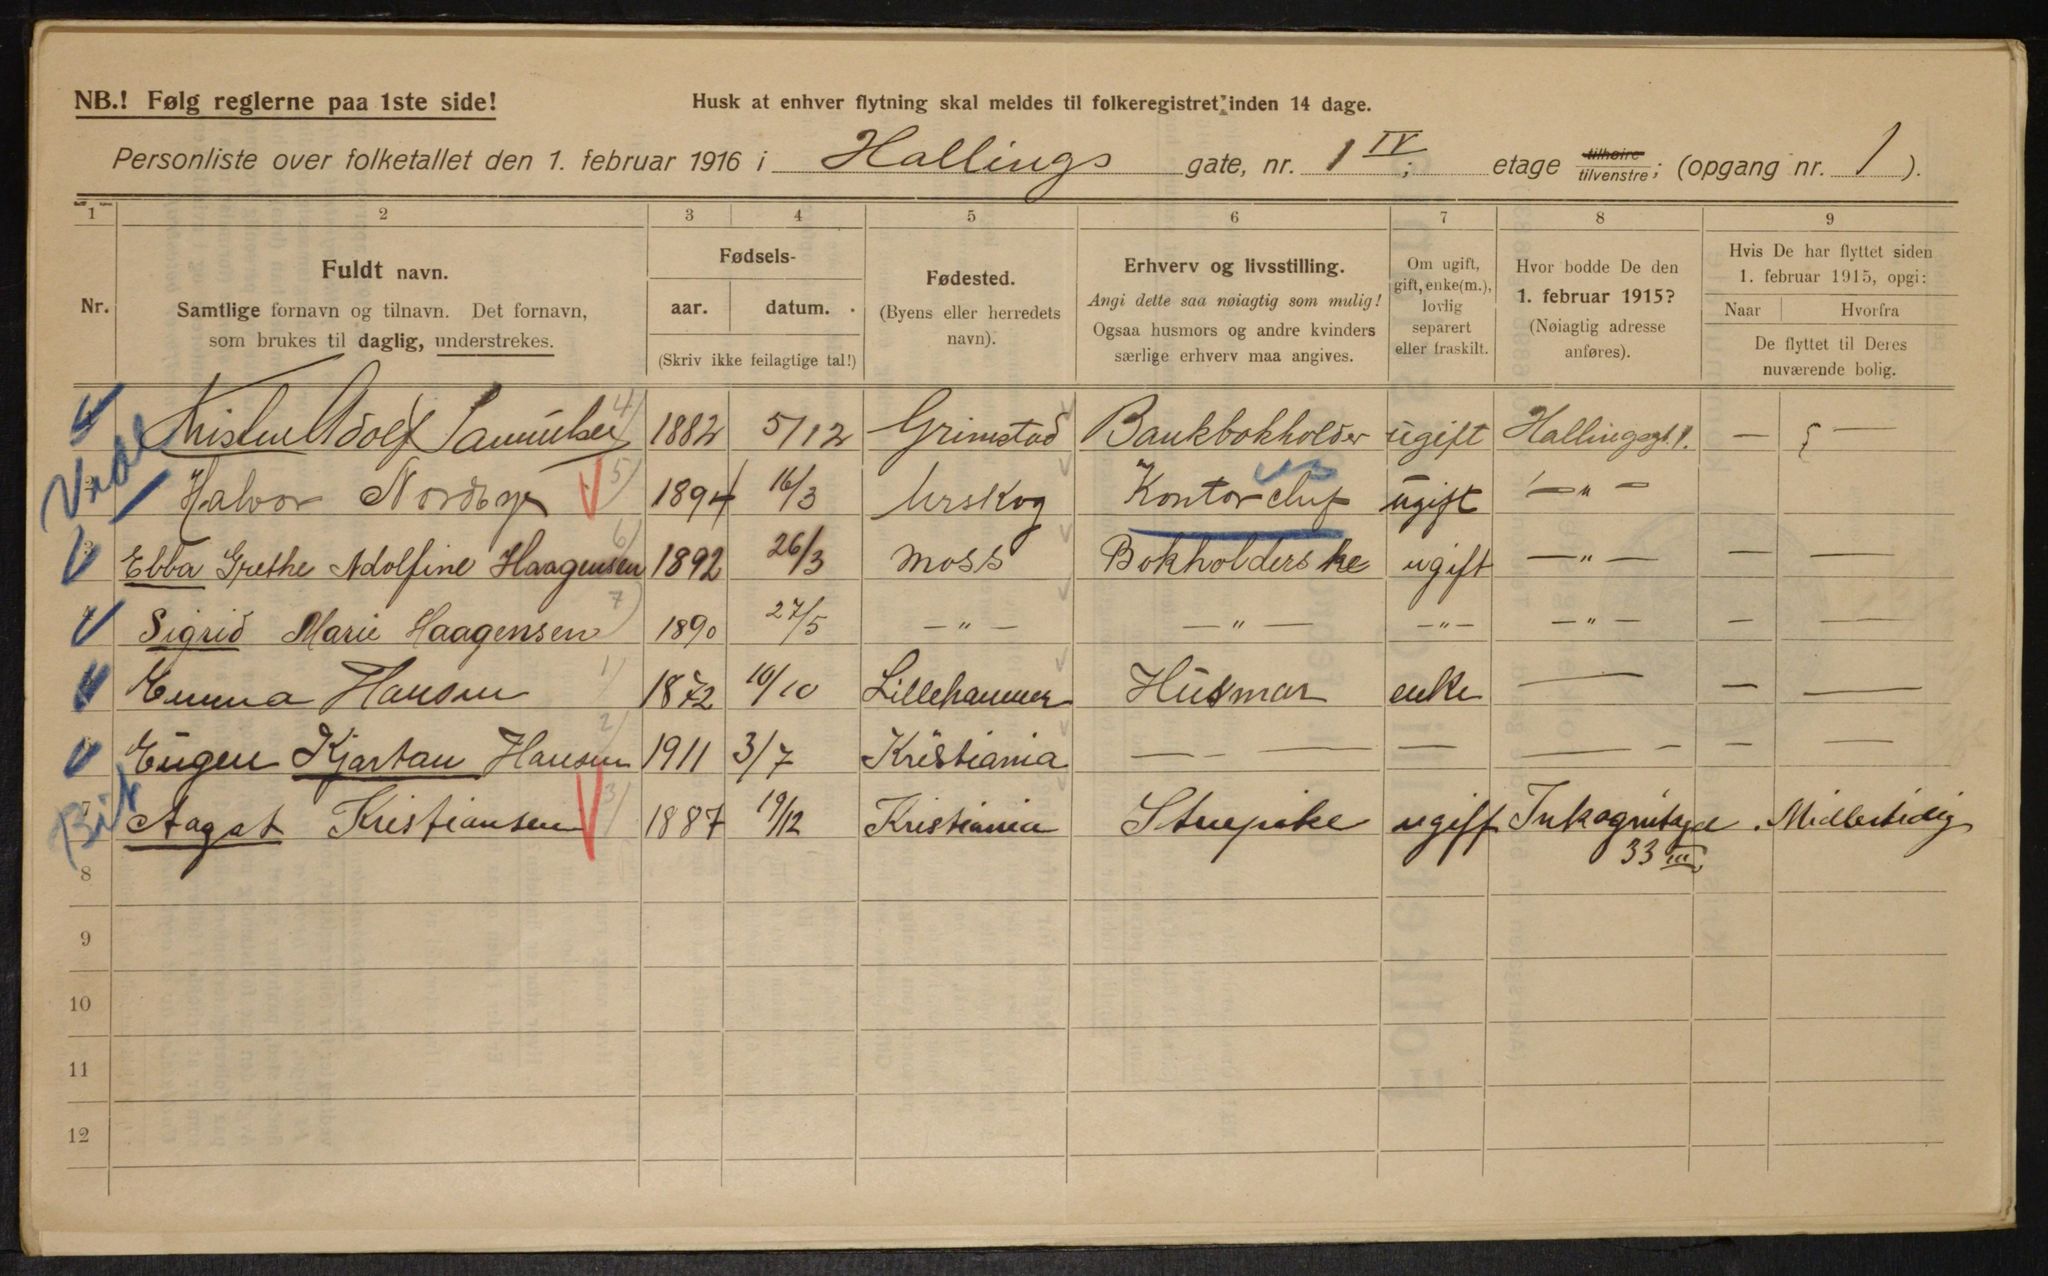 NB.! Følg reglerne paa 1ste side!
Husk at enhver flytning skal meldes til folkeregistret inden 14 dage.
Personliste over folketallet den 1. februar 1916 i Hallings gate, nr. 1 IV; etage tilhøire tilvenstre; (opgang nr. 1).
1 2 3 4 5 6 7 8 9
Nr.
Fuldt navn.
Samtlige fornavn og tilnavn. Det fornavn,
som brukes til daglig, understrekes.
Fødsels-
aar. datum.
(Skriv ikke feilagtige tal!)
Fødested.
(Byens eller herredets
navn).
Erhverv og livsstilling.
Angi dette saa nøiagtig som mulig!
Ogsaa husmors og andre kvinders
særlige erhverv maa angives.
Om ugift,
gift, enke(m.),
lovlig
separert
eller fraskilt.
Hvor bodde De den
1. februar 1915?
(Nøiagtig adresse
anføres).
Hvis De har flyttet siden
1. februar 1915, opgi:
Naar Hvorfra
De flyttet til Deres
nuværende bolig.
Kristen Adolf Samuelsen 4) 1882 5/12 Grimstad Bankbokholder ugift Hallingsgt. 1. — —
Halvor Nordbye 5) 1894 16/3 Urskog Kontorchef ugift — " —
Ebba Grethe Adolfine Haagensen 6) 1892 26/3 Moss Bokholderske ugift — " — — —
Sigrid Marie Haagensen 7) 1890 27/5 — " — — " — — " — — " — — —
Emma Hansen 1) 1872 10/10 Lillehammer Husmor enke — — —
Eugen Kjartan Hansen 2) 1911 3/7 Kristiania — — — — — — —
7 Aagot Kristiansen 3) 1887 19/12 Kristiania Strypike ugift Inkognitogd. Midlertidig
33 III.
8
9
10
11
12